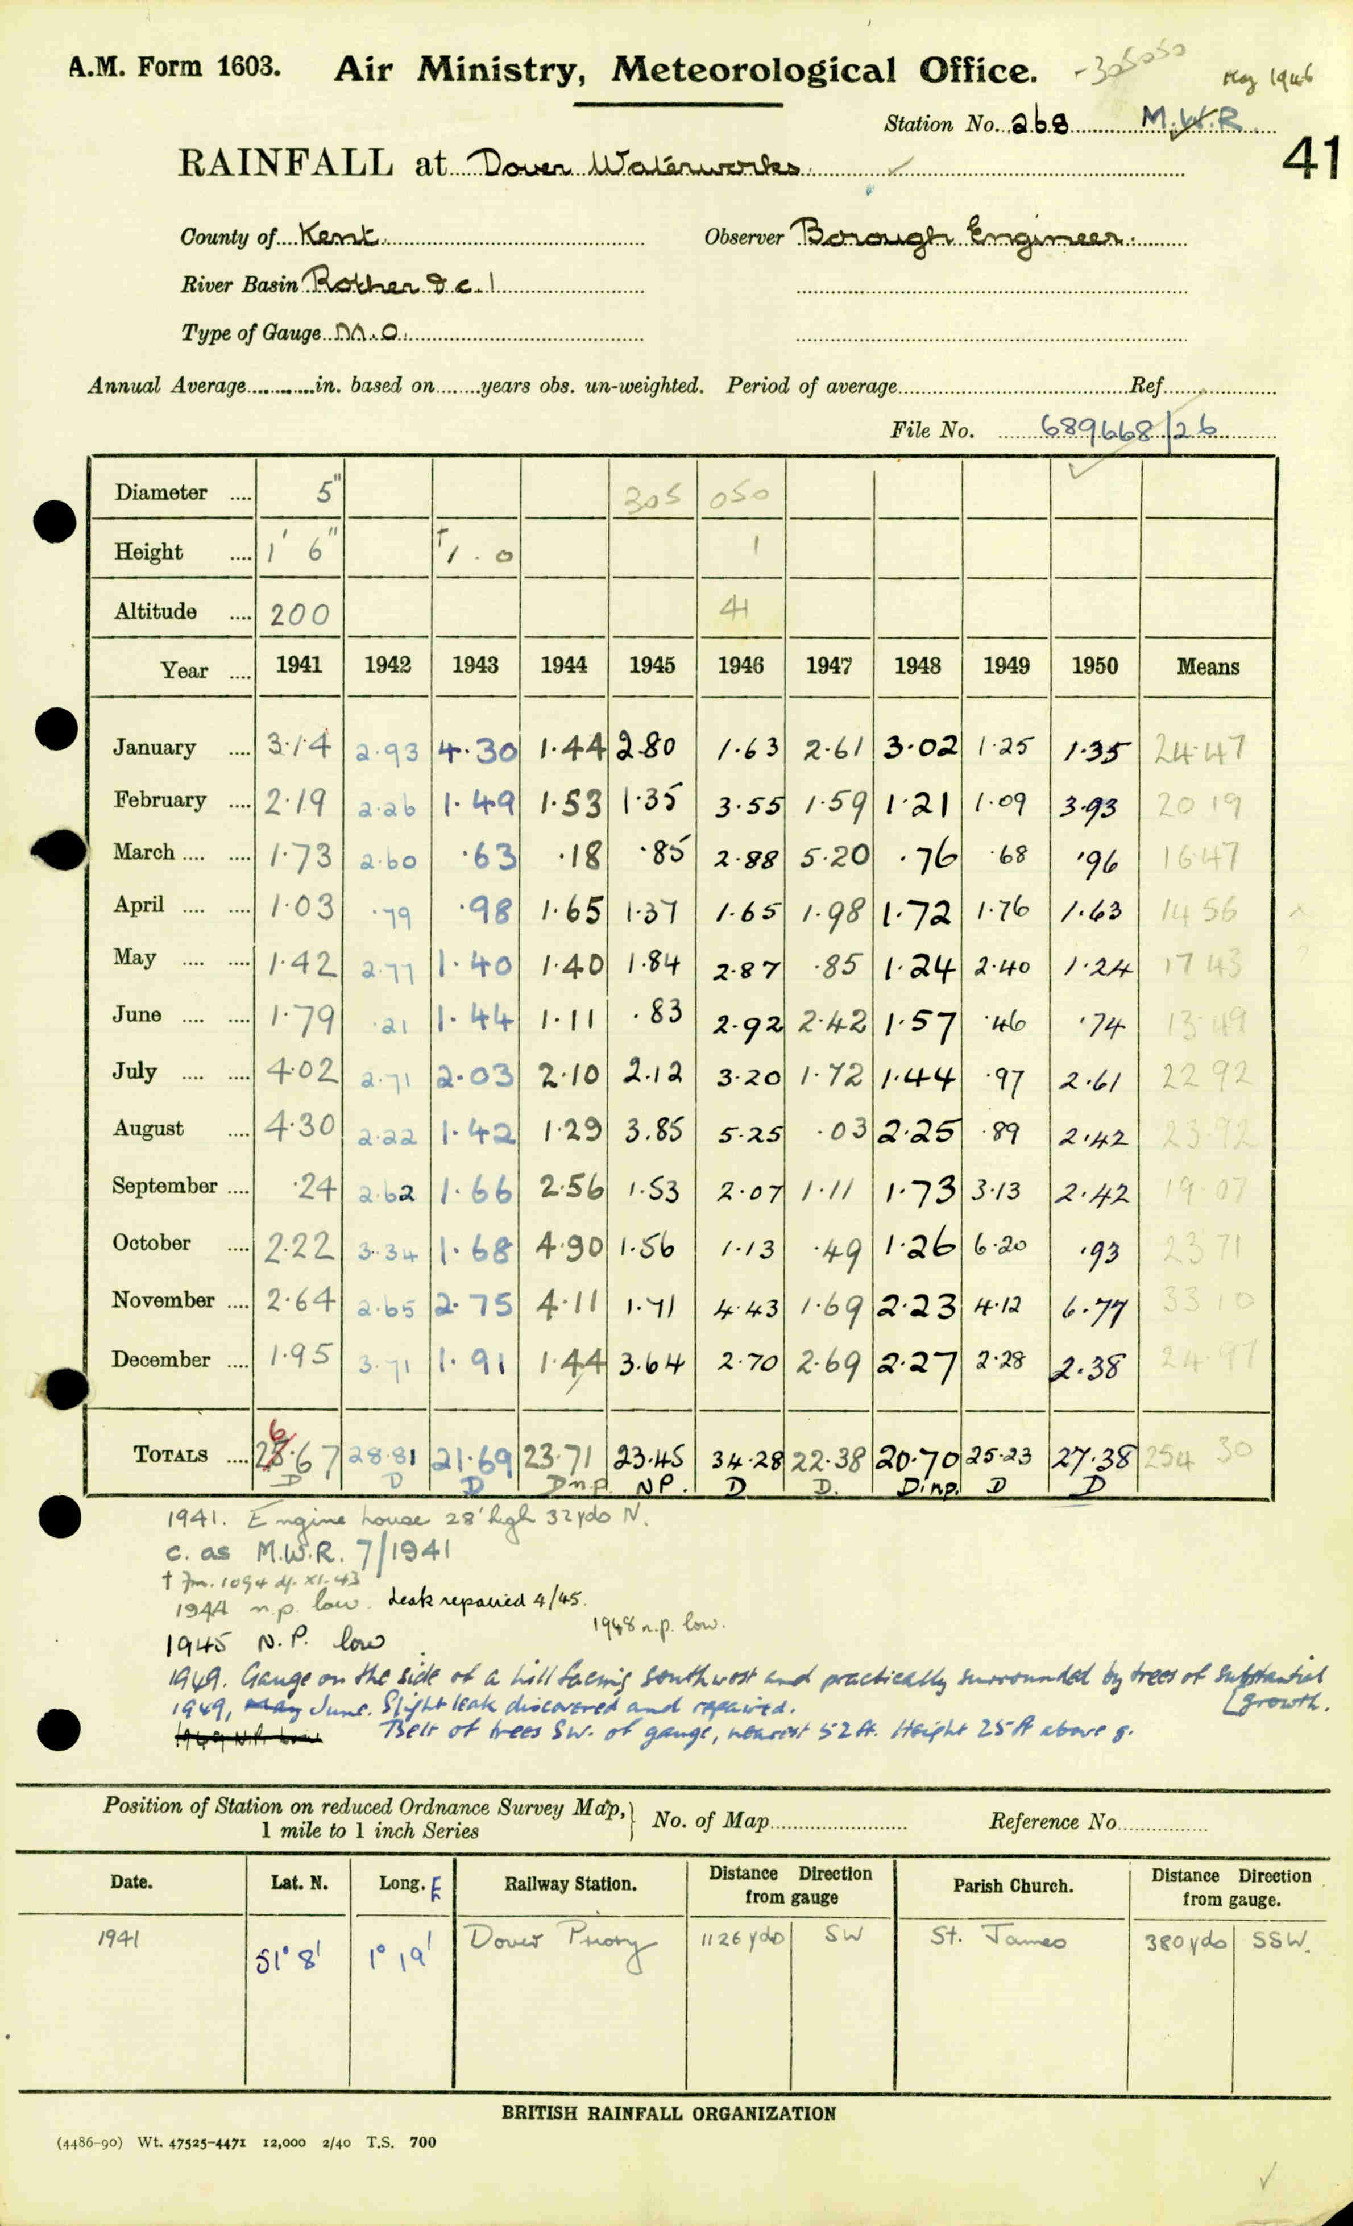 A.M. Form 1603. Air Ministry, Meteorological Office. -305050 May 1946
Station No. 268 M.W.R.
41
RAINFALL at Dover Waterworks
County of Kent Observer Borough Engineer.
River Basin Rother &c. 1
Type of Gauge M.O.
Annual Average in. based on years obs. un-weighted. Period of average Ref.
File No. 689668/26
Diameter 5" 305 050
Height 1' 6" †1.0 1
Altitude 200 41
Year 1941 1942 1943 1944 1945 1946 1947 1948 1949 1950 Means
January 3.14 2.93 4.30 1.44 2.80 1.63 2.61 3.02 1.25 1.35 24.47
February 2.19 2.26 1.49 1.53 1.35 3.55 1.59 1.21 1.09 3.93 20 19
March 1.73 2.60 .63 .18 .85 2.88 5.20 .76 .68 .96 16.47
April 1.03 .79 .98 1.65 1.37 1.65 1.98 1.72 1.76 1.63 14 56
May 1.42 2.77 1.40 1.40 1.84 2.87 .85 1.24 2.40 1.24 17 43
June 1.79 .21 1.44 1.11 .83 2.92 2.42 1.57 .46 .74 13.49
July 4.02 2.71 2.03 2.10 2.12 3.20 1.72 1.44 .97 2.61 22 92
August 4.30 2.22 1.42 1.29 3.85 5.25 .03 2.25 .89 2.42 23.92
September .24 2.62 1.66 2.56 1.53 2.07 1.11 1.73 3.13 2.42 19.07
October 2.22 3.34 1.68 4.90 1.56 1.13 .49 1.26 6.20 .93 23 71
November 2.64 2.65 2.75 4.11 1.71 4.43 1.69 2.23 4.12 6.77 33 10
December 1.95 3.71 1.91 1.44 3.64 2.70 2.69 2.27 2.28 2.38 24.97
TOTALS 26.67 28.81 21.69 23.71 23.45 34.28 22.38 20.70 25.23 27.38 254 30
D D D Dnp. NP. D D. D.np. D D
1941. Engine house 28' high 32 yds N.
c. as M.W.R. 7/1941
† Fm. 1094 df. XI.43
1944 n.p. low. Leak repaired 4/45.
1948 n.p. low.
1945 N.P. low
1949. Gauge on the side of a hill facing southwest and practically surrounded by trees of substantial growth.
1949, May June. Slight leak discovered and repaired.
1949 N.P. low Belt of trees SW. of gauge, nearest 52 ft. Height 25 ft above g.
Position of Station on reduced Ordnance Survey Map, 1 mile to 1 inch Series No. of Map Reference No.
Date. Lat. N. Long. E Railway Station. Distance Direction from gauge Parish Church. Distance Direction from gauge.
1941 51° 8' 1° 19' Dover Priory 1126 yds SW St. James 380 yds SSW.
BRITISH RAINFALL ORGANIZATION
(4486-90) Wt. 47525-4471 12,000 2/40 T.S. 700